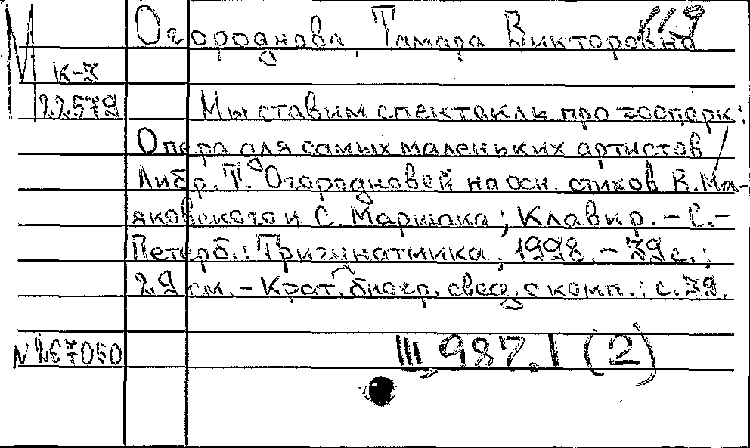 М Огороднова, Тамара Викторовна 669
К-3
22579 Мы ставим спектакль про зоопарк:
Опера для самых маленьких артистов /
Либр. Т. Огородновой на осн. стихов В. Ма-
яковского и С. Маршака; Клавир. – С.-
Петерб.: Тригуната, 1998. – 39 с.;
29 см. – Крат. биогр. свед. о комп.: с. 39.
N 267050 III, 987.1 (2)